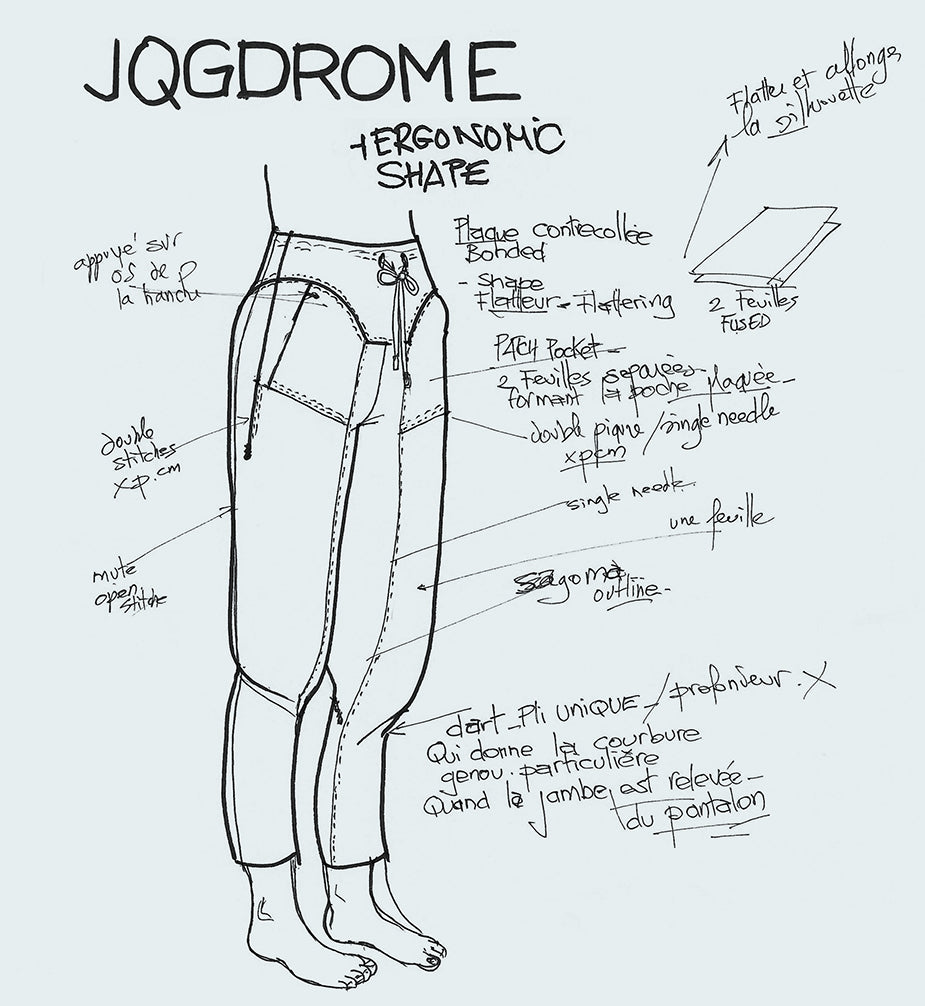 JQGDROME
+ERGONOMIC
SHAPE
Flatter et allonge
la silhouette
appuyé sur
os de
la hanche
Plaque contrecollée
Bonded
- Shape
Flatteur - Flattering
2 Feuilles
FUSED
PATCH Pocket -
2 Feuilles separées -
formant la poche plaquée -
double piqure / single needle
xp cm
double
stitches
xp.cm
single needle
une feuille
mute
open
stitche
sagoma
outline -
dart - Pli UNIQUE - / profondeur. X
Qui donne la courbure
genou. particulière
Quand la jambe est relevée -
du pantalon